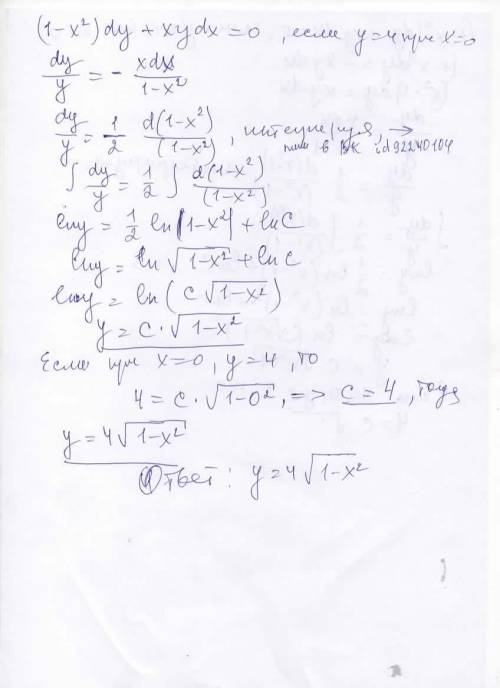 (1-x²)dy + xydx = 0 , если y=4 при x=0
dy/y = - xdx/(1-x²)
dy/y = 1/2 d(1-x²)/(1-x²) , интегрируя, →
пиши в ВК id92240104
∫ dy/y = 1/2 ∫ d(1-x²)/(1-x²)
lny = 1/2 ln|1-x²| + lnC
lny = ln√(1-x²) + lnC
lny = ln(C√(1-x²))
y = C·√(1-x²)
Если при x=0, y=4, то
4 = C·√(1-0²), => C=4, тогда
y=4√(1-x²)
Ответ: y=4√(1-x²)